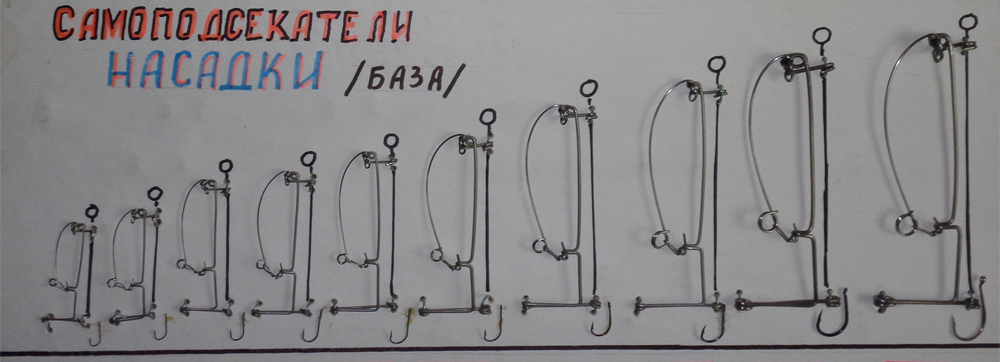 САМОПОДСЕКАТЕЛИ
НАСАДКИ /БАЗА/